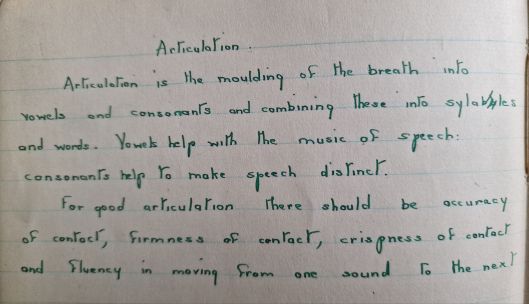 Articulation.
Articulation is the moulding of the breath into
vowels and consonants and combining these into sylables
and words. Vowels help with the music of speech:
consonants help to make speech distinct.
For good articulation there should be accuracy
of contact, firmness of contact, crispness of contact
and fluency in moving from one sound to the next